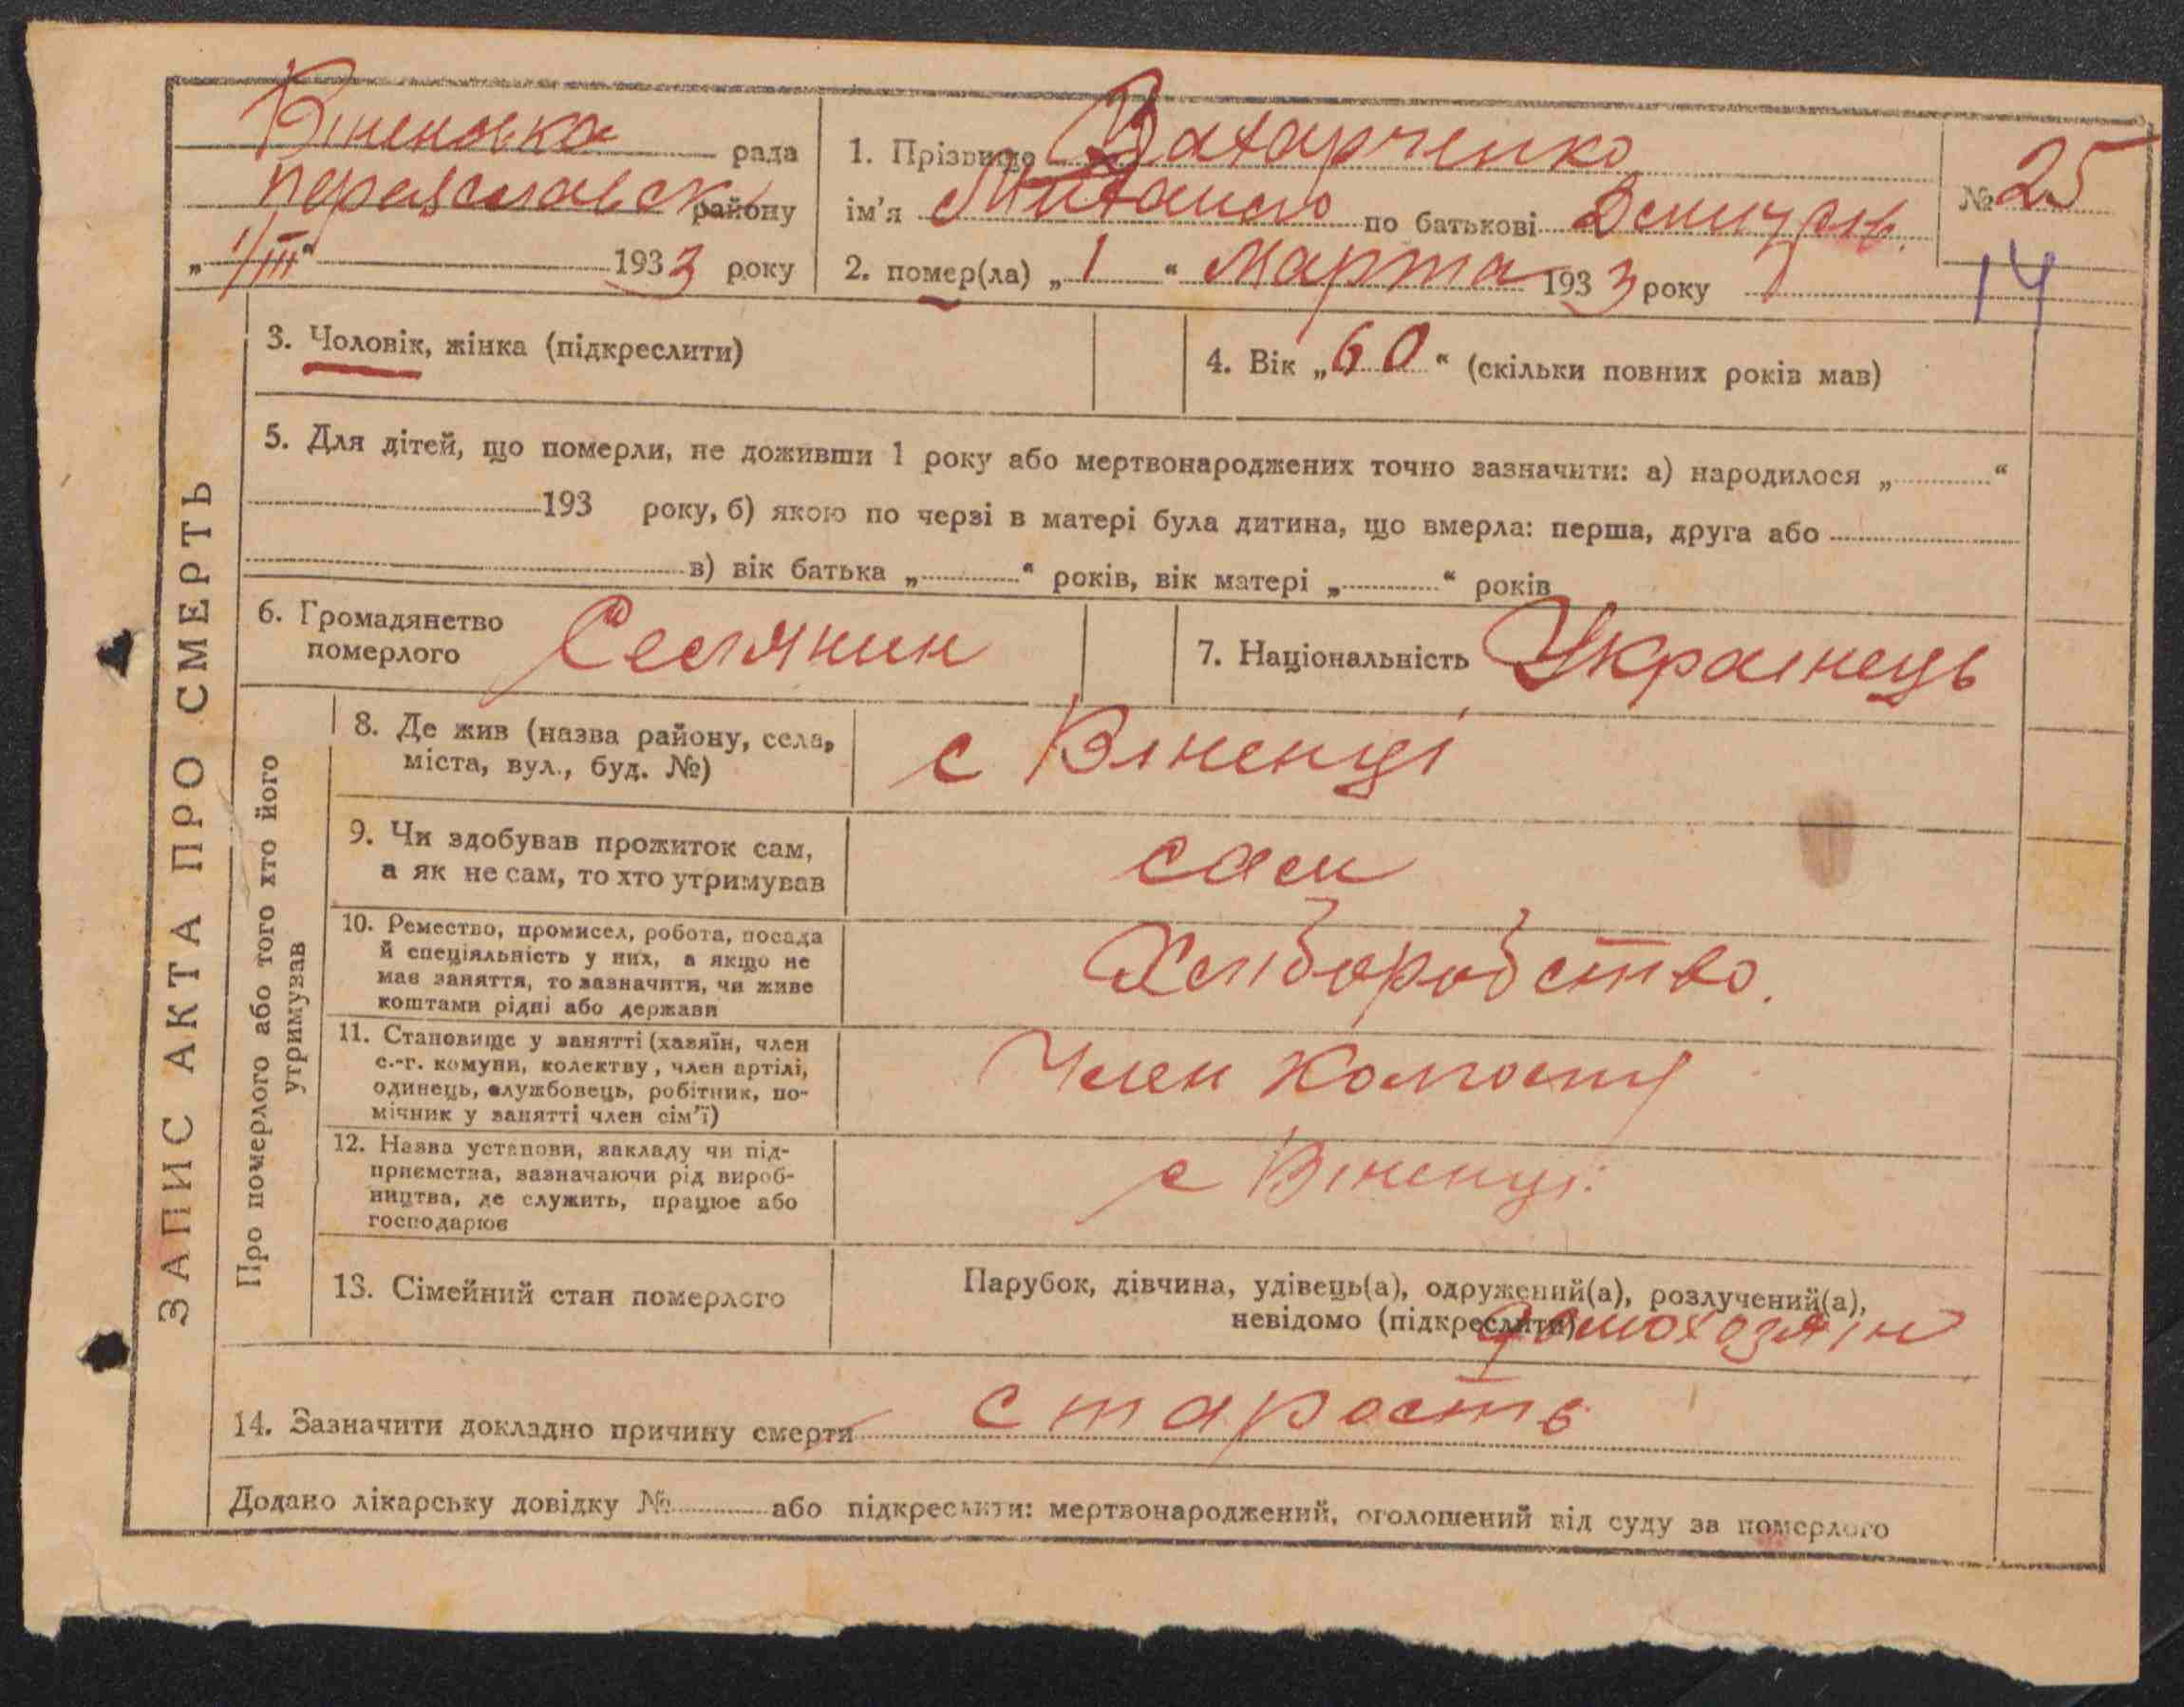 Віненська рада
Переяславськ району
„1/III“ 1933 року
1. Прізвище Захарченко
ім'я Михайло по батькові Демидов.
2. помер(ла) „1“ Марта 1933 року
№ 25
14
ЗАПИС АКТА ПРО СМЕРТЬ
3. Чоловік, жінка (підкреслити)
4. Вік „60“ (скільки повних років мав)
5. Для дітей, що померли, не доживши 1 року або мертвонароджених точно зазначити: а) народилося „ “
193 року, б) якою по черзі в матері була дитина, що вмерла: перша, друга або
в) вік батька „ “ років, вік матері „ “ років
6. Громадянство
померлого Селянин
7. Національність Украінець
Про померлого або того хто його
утримував
8. Де жив (назва району, села,
міста, вул., буд. №) с Віненці
9. Чи здобував прожиток сам,
а як не сам, то хто утримував сам
10. Ремество, промисел, робота, посада
й спеціяльність у них, а якщо не
має заняття, то зазначити, чи живе
коштами рідні або держави Хліборобство.
11. Становище у занятті (хазяїн, член
с.-г. комуни, колектву, член артілі,
одинець, службовець, робітник, по-
мічник у занятті член сім'ї) Член Колгоспу
12. Назва установи, закладу чи під-
приємства, зазначаючи рід вироб-
ництва, де служить, працює або
господарює с Віненці.
13. Сімейний стан померлого
Парубок, дівчина, удівець(а), одружений(а), розлучений(а),
невідомо (підкреслити) домохозяін
14. Зазначити докладно причину смерти старость
Додано лікарську довідку № або підкреслити: мертвонароджений, оголошений від суду за померлого